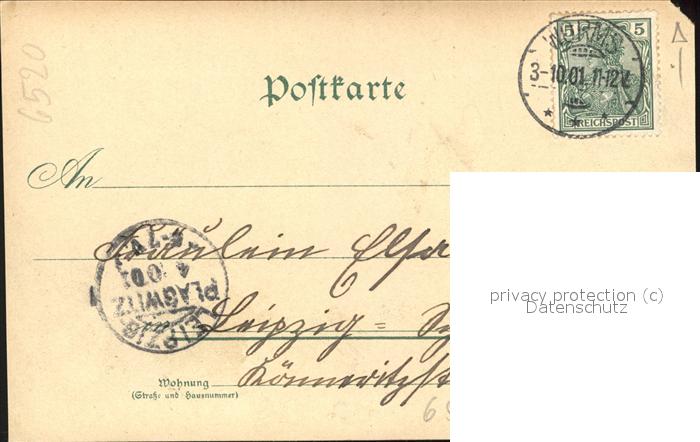 6520
5 5
REICHSPOST
WORMS
3-10.01. 11-12 V.
Postkarte
An
Fräulein Elsa
LEIPZIG
PLAGWITZ
4.10.01
6-7 V.
in Leipzig =
Könneritzst
Wohnung
(Straße und Hausnummer)
privacy protection (c)
Datenschutz